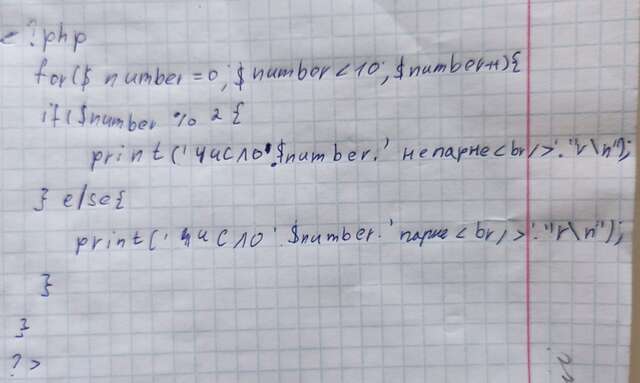 <?php
for($ number=0;$ number<10;$number++){
if($number % 2 {
print('число'.$number.' непарне<br/>'."\r\n");
} else{
print('число'.$number.' парне<br/>'."\r\n");
}
}
?>